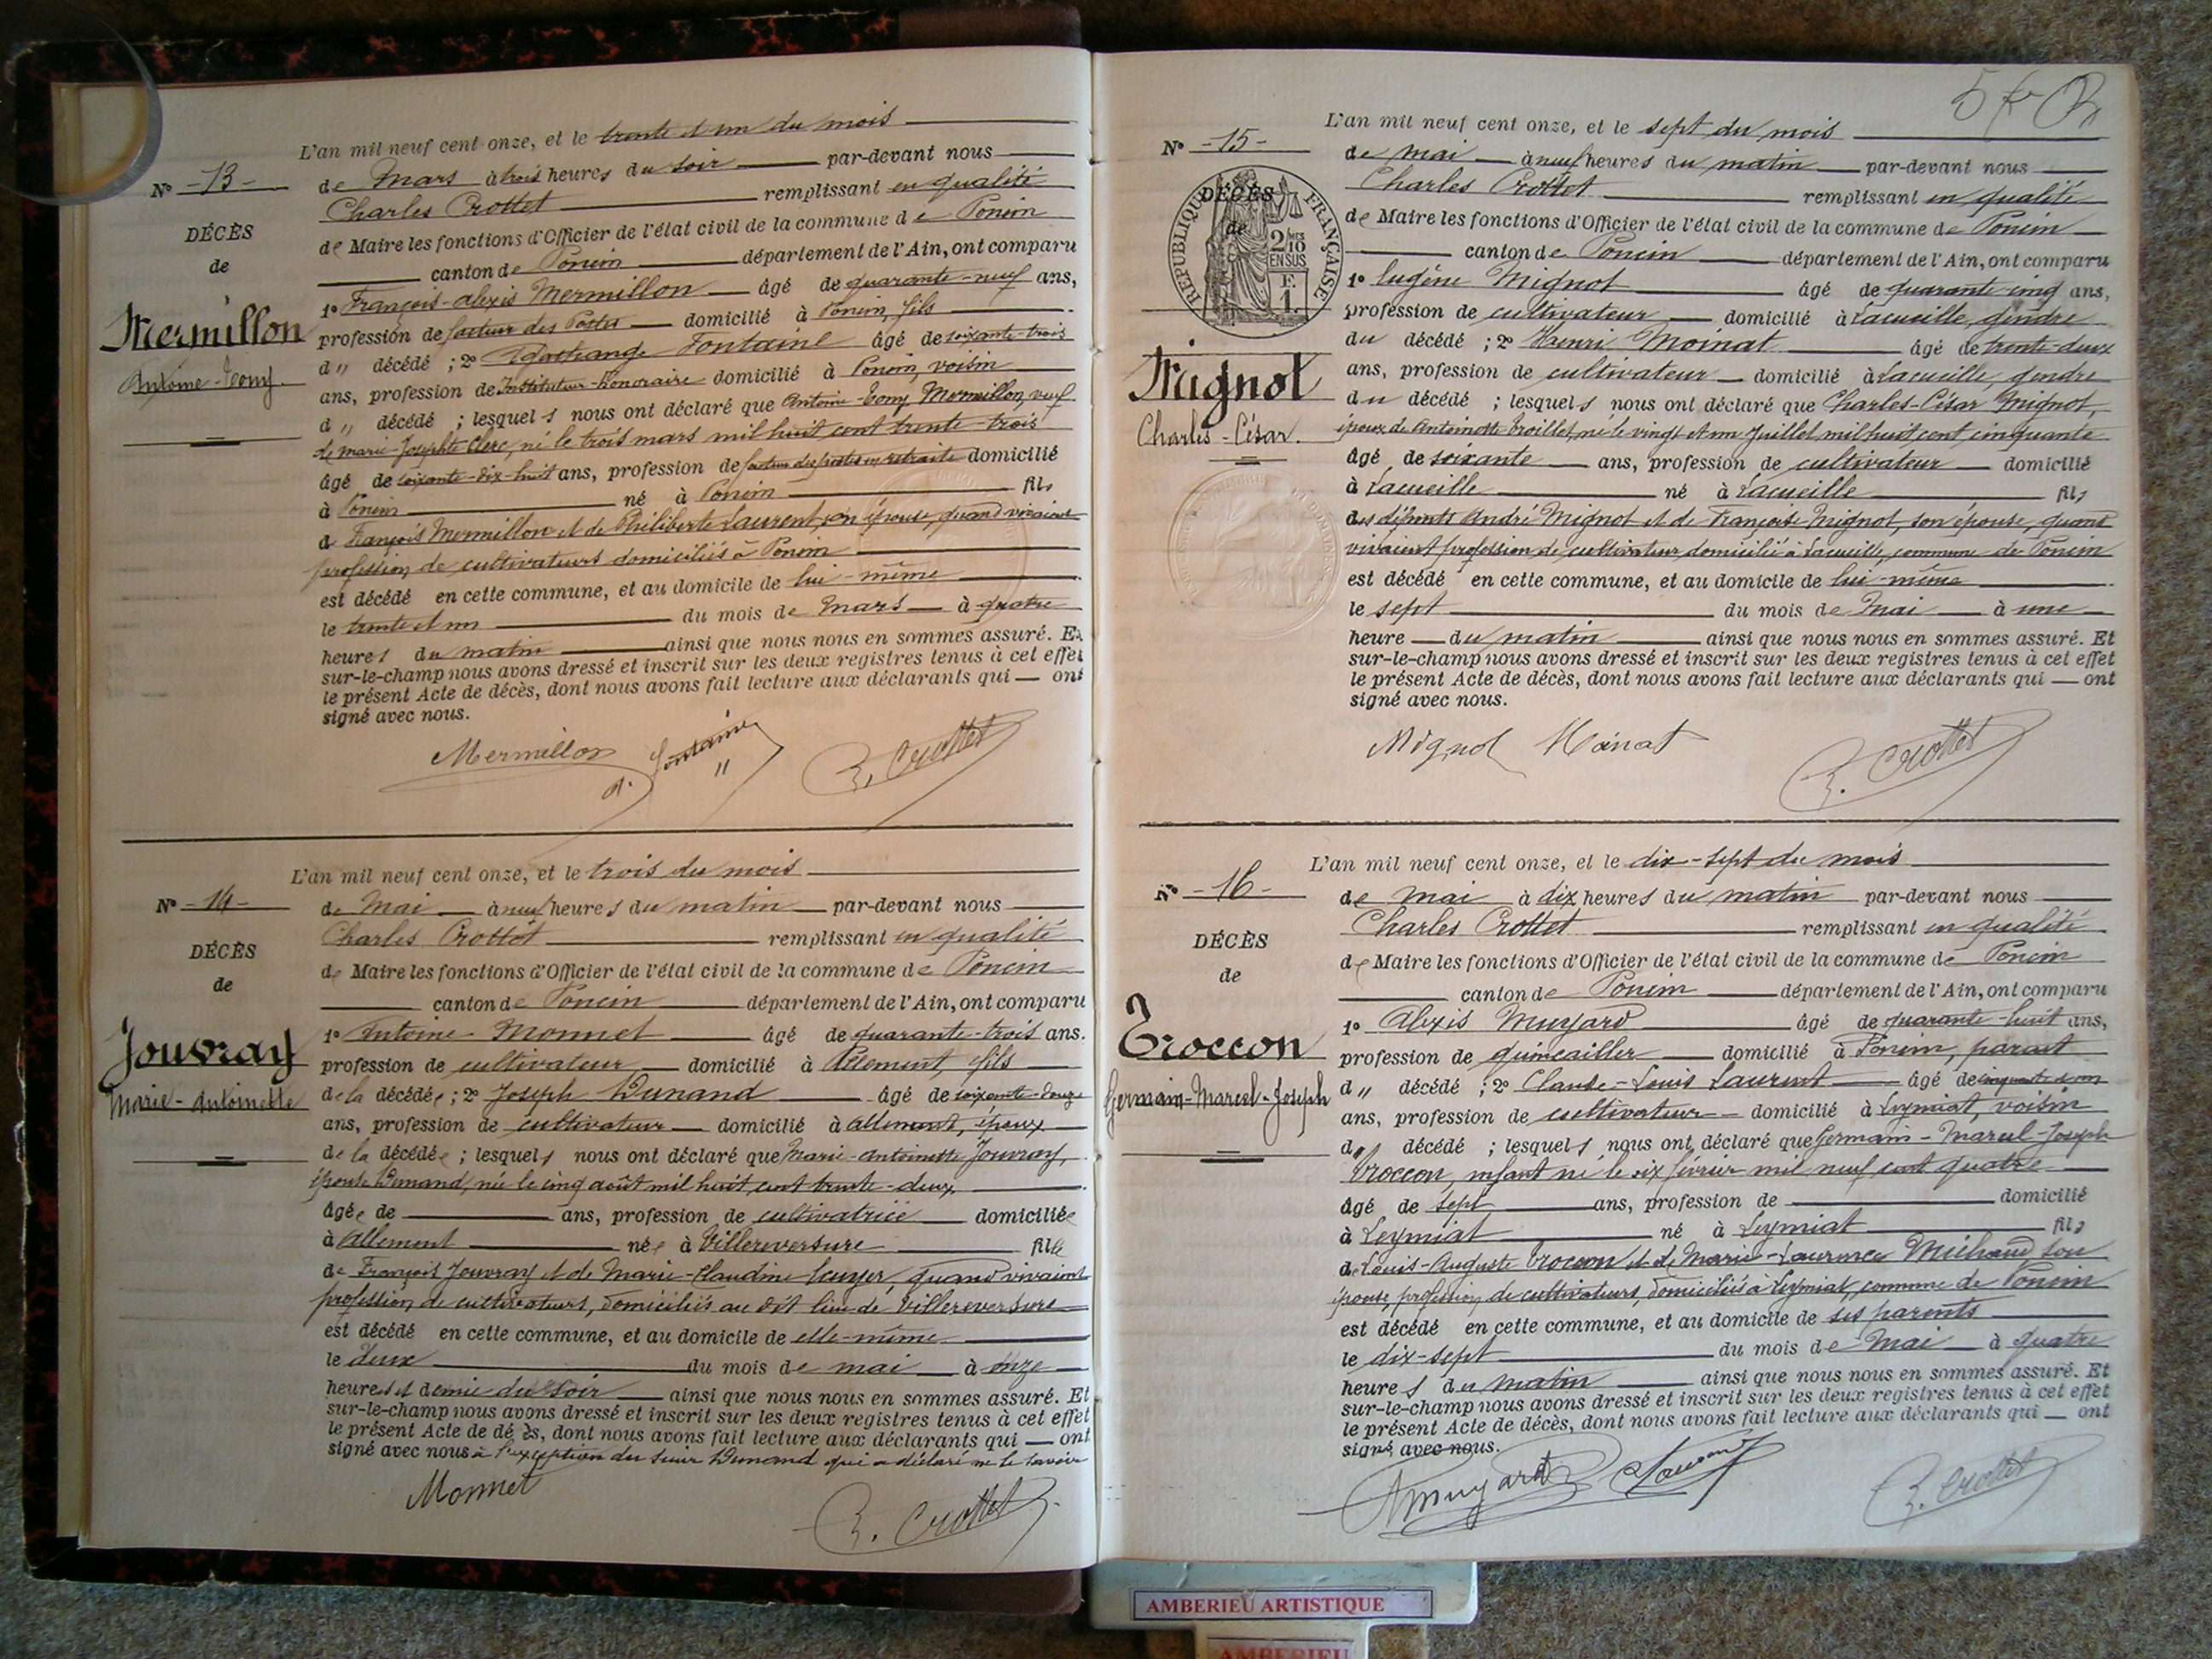 L'an mil neuf cent onze, et le trente et un du mois
N° -13-
de Mars à trois heures du soir par-devant nous
Charles Crottet remplissant en qualité
DÉCÈS
de Maire les fonctions d'Officier de l'état civil de la commune de Poncin
de
canton de Poncin département de l'Ain, ont comparu
1° François-Alexis Mermillon âgé de quarante-neuf ans,
Mermillon
profession de facteur des Postes domicilié à Poncin, fils
d" décédé ; 2° Fontaine âgé de soixante trois
Antoine-Tony.
ans, profession de Instituteur-Honoraire domicilié à Poncin, voisin
d" décédé ; lesquels nous ont déclaré que Antoine-Tony Mermillon, veuf
de Marie-Josephte Clerc, né le trois mars mil huit cent trente-trois
âgé de soixante-dix-huit ans, profession de facteur des postes en retraite domicilié
à Poncin né à Poncin fils
d François Mermillon et de Philiberte Laurent, son épouse, quand vivaient
profession de cultivateurs domiciliés à Poncin
est décédé en cette commune, et au domicile de lui-même
le trente et un du mois de Mars à quatre
heures du matin ainsi que nous nous en sommes assuré. Et
sur-le-champ nous avons dressé et inscrit sur les deux registres tenus à cet effet
le présent Acte de décès, dont nous avons fait lecture aux déclarants qui ont
signé avec nous.
Mermillon Fontaine C. Crottet
L'an mil neuf cent onze, et le trois du mois
N° -14-
de Mai à neuf heures du matin par-devant nous
Charles Crottet remplissant en qualité
DÉCÈS
de Maire les fonctions d'Officier de l'état civil de la commune de Poncin
de
canton de Poncin département de l'Ain, ont comparu
1° Antoine Monnet âgé de quarante-trois ans.
Jouvray
profession de cultivateur domicilié à Allement, fils
Marie-Antoinette
de la décédée ; 2° Joseph Dunand âgé de soixante-douze
ans, profession de cultivateur domicilié à Allement, époux
de la décédée ; lesquels nous ont déclaré que Marie-Antoinette Jouvray,
épouse Dunand, née le cinq août mil huit cent trente-deux,
âgée de ans, profession de cultivatrice domiciliée
à Allement née à Villereversure fille
de François Jouvray et de Marie-Claudine quand vivaient
profession de cultivateurs, domiciliés au dit lieu de Villereversure
est décédé en cette commune, et au domicile de elle-même
le deux du mois de mai à onze
heures et demie du soir ainsi que nous nous en sommes assuré. Et
sur-le-champ nous avons dressé et inscrit sur les deux registres tenus à cet effet
le présent Acte de dé ès, dont nous avons fait lecture aux déclarants qui ont
signé avec nous à l'exception du sieur Dunand qui a déclaré ne le savoir
Monnet C. Crottet
L'an mil neuf cent onze, et le sept du mois
N° -15-
de mai à neuf heures du matin par-devant nous
Charles Crottet remplissant en qualité
DÉCÈS
de
REPUBLIQUE FRANÇAISE
2/10 EN SUS
F. 1.
de Maire les fonctions d'Officier de l'état civil de la commune de Poncin
canton de Poncin département de l'Ain, ont comparu
1° Eugène Mignot âgé de quarante-cinq ans,
profession de cultivateur domicilié à Lacueille, gendre
du décédé ; 2° Henri Moinat âgé de trente-deux
Mignot
ans, profession de cultivateur domicilié à Lacueille, gendre
du décédé ; lesquels nous ont déclaré que Charles-César Mignot,
Charles-César.
époux de Antoinette Troillet, né le vingt et un Juillet mil huit cent cinquante
âgé de soixante ans, profession de cultivateur domicilié
à Lacueille né à Lacueille fils
des défunts André Mignot et de Françoise Mignot, son épouse, quand
vivaient profession de cultivateur domicilié à Lacueille, commune de Poncin
est décédé en cette commune, et au domicile de lui-même
le sept du mois de Mai à une
heure du matin ainsi que nous nous en sommes assuré. Et
sur-le-champ nous avons dressé et inscrit sur les deux registres tenus à cet effet
le présent Acte de décès, dont nous avons fait lecture aux déclarants qui ont
signé avec nous.
Mignot Moinat C. Crottet
L'an mil neuf cent onze, et le dix-sept du mois
N° -16-
de mai à dix heures du matin par-devant nous
Charles Crottet remplissant en qualité
DÉCÈS
de Maire les fonctions d'Officier de l'état civil de la commune de Poncin
de
canton de Poncin département de l'Ain, ont comparu
1° Alexis Muyard âgé de quarante-huit ans,
Troccon
profession de quincailler domicilié à Poncin, parent
Germain-Marcel-Joseph
d" décédé ; 2° Claude-Louis Laurent âgé de
ans, profession de cultivateur domicilié à Leymiat, voisin
d" décédé ; lesquels nous ont déclaré que Germain-Marcel-Joseph
Troccon, enfant né le six février mil neuf cent quatre
âgé de sept ans, profession de domicilié
à Leymiat né à Leymiat fils
de Louis-Auguste Troccon et de Marie-Laurence Michaud son
épouse, profession de cultivateurs, domiciliés à Leymiat, commune de Poncin
est décédé en cette commune, et au domicile de ses parents
le dix-sept du mois de Mai à quatre
heures du matin ainsi que nous nous en sommes assuré. Et
sur-le-champ nous avons dressé et inscrit sur les deux registres tenus à cet effet
le présent Acte de décès, dont nous avons fait lecture aux déclarants qui ont
signé avec nous.
AMuyard Laurent C. Crottet
AMBERIEU ARTISTIQUE
AMBERIEU